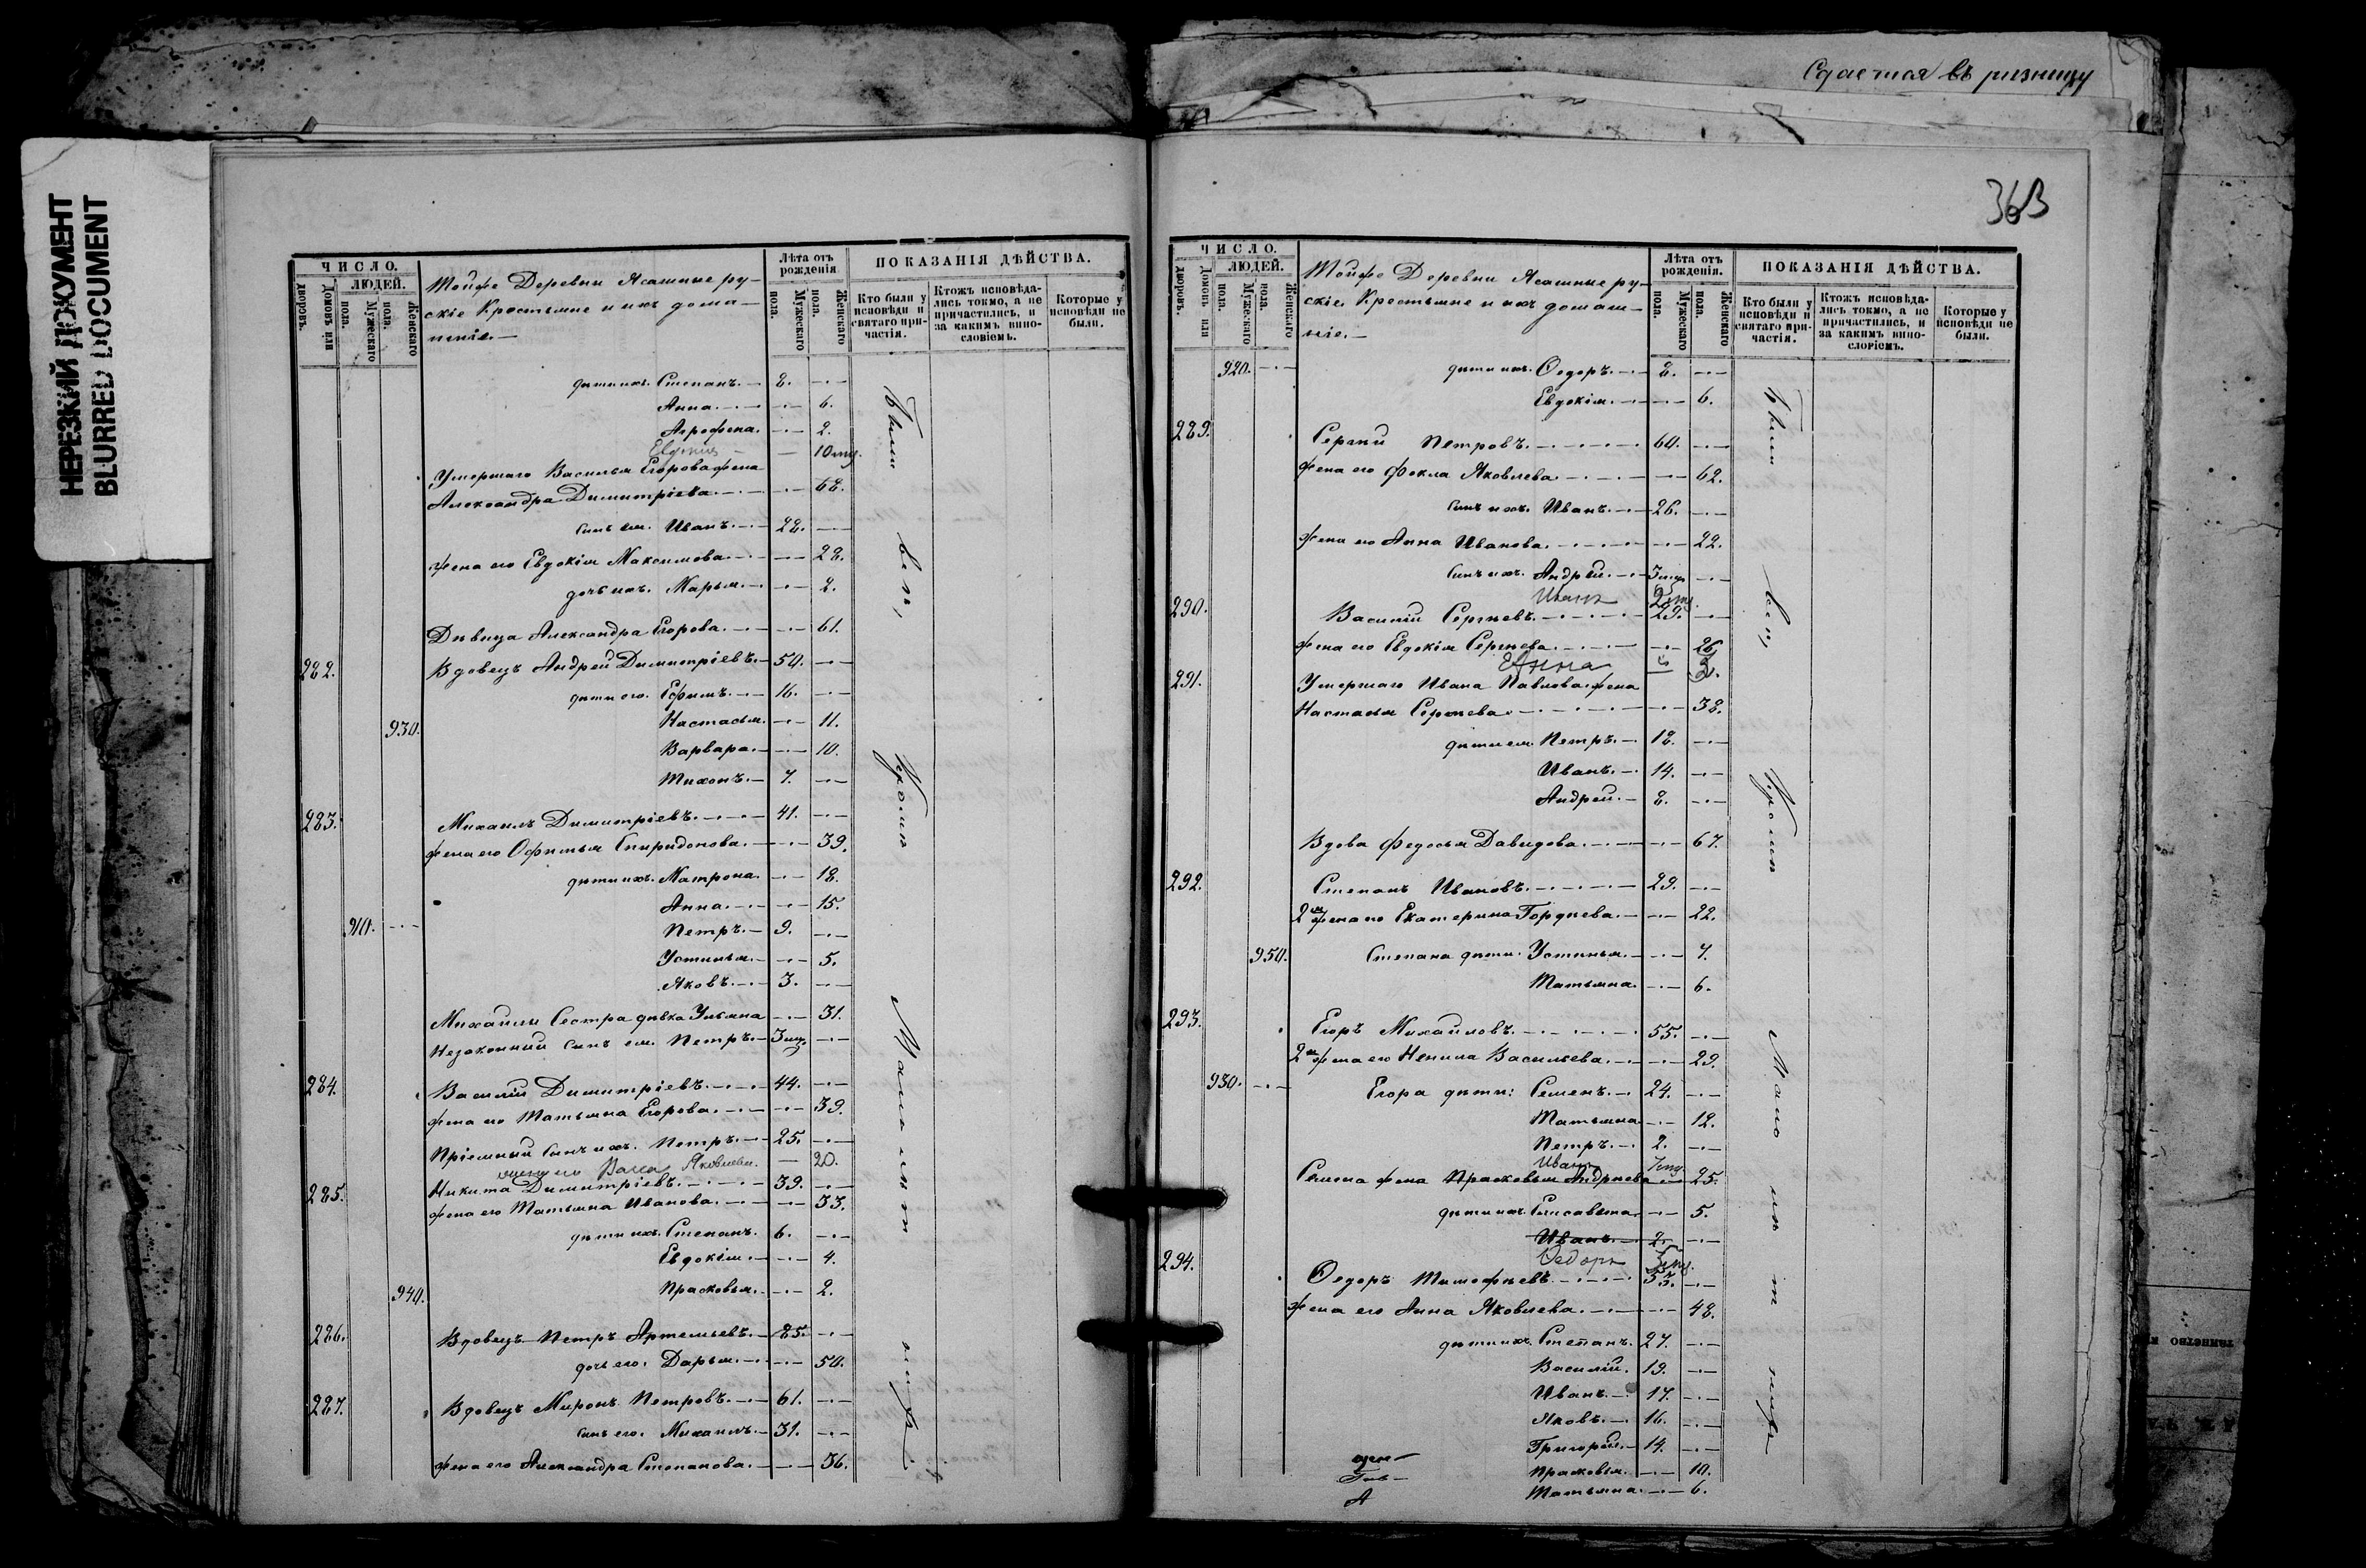 НЕРЕЗКИЙ ДОКУМЕНТ
BLURRED DOCUMENT
Сдается въ ризницу
363
ЧИСЛО.
Дворовъ.
Домовъ или
ЛЮДЕЙ.
Мужескаго пола.
Женскаго пола.
Тойже Деревни Ясашные ру-
скіе Крестьяне и ихъ дома-
шніе.—
Лѣта отъ рожденія.
Мужескаго пола.
Женскаго пола.
ПОКАЗАНІЯ ДѢЙСТВА.
Кто были у исповѣди и святаго причастія.
Ктожъ исповѣдались токмо, а не причастились, и за какимъ винословіемъ.
Которые у исповѣди не были.
дѣти ихъ. Степанъ. 8.
Анна. 6.
Агрофена. 2.
10 мц.
Умершаго Василья Егорова жена
Александра Димитріева. 68.
Сынъ ея. Иванъ. 28.
жена его Евдокія Максимова. 28.
дочь ихъ. Марья. 2.
Дѣвица Александра Егорова. 61.
282. Вдовецъ Андрей Димитріевъ. 50.
дѣти его. Ефимъ. 16.
930. Настасья. 11.
Варвара. 10.
Тихонъ. 7.
283. Михаилъ Димитріевъ. 41.
жена его Офимья Спиридонова. 39.
дѣти ихъ. Матрона. 18.
Анна. 15.
910. Петръ. 9.
Устинья. 5.
Яковъ. 3.
Михаилы Сестра дѣвка Ульяна 31.
Незаконный сынъ ея. Петръ. 3 мц.
284. Василій Димитріевъ. 44.
жена его Татьяна Егорова. 39.
Пріемный Сынъ ихъ. Петръ. 25.
Яковлева. 20.
285. Никита Димитріевъ. 39.
жена его Татьяна Иванова. 33.
дѣти ихъ. Степанъ. 6.
Евдокія. 4.
940. Прасковья. 2.
286. Вдовецъ Петръ Артемьевъ. 85.
дочь его. Дарья. 50.
287. Вдовецъ Миронъ Петровъ. 61.
Сынъ его. Михаилъ. 31.
жена его Александра Степанова. 36.
Были всѣ, кромѣ Малолѣт
ЧИСЛО.
Дворовъ.
Домовъ или
ЛЮДЕЙ.
Мужескаго пола.
Женскаго пола.
Тойже Деревни Ясашные ру-
скіе Крестьяне и ихъ домаш-
ніе.—
Лѣта отъ рожденія.
Мужескаго пола.
Женскаго пола.
ПОКАЗАНІЯ ДѢЙСТВА.
Кто были у исповѣди и святаго причастія.
Ктожъ исповѣдались токмо, а не причастились, и за какимъ винословіемъ.
Которые у исповѣди не были.
920. дѣти ихъ. Ѳедоръ. 8.
Евдокія. 6.
289. Сергѣй Петровъ. 60.
жена его Фекла Яковлева. 62.
Сынъ ихъ. Иванъ. 26.
жена его Анна Иванова. 22.
Сынъ ихъ. Андрей. 3 мц.
Иванъ 2 мц.
290. Василій Сергѣевъ. 29.
жена его Евдокія Сергѣева. 26.
Анна
291. Умершаго Ивана Павлова жена
Настасья Сергѣева. 38.
дѣти ея. Петръ. 18.
Иванъ. 14.
Андрей. 8.
Вдова Федосья Давыдова. 67.
292. Степанъ Ивановъ. 29.
2я жена его Екатерина Гордѣева. 22.
950. Степана дѣти. Устинья. 7.
Татьяна. 6.
293. Егоръ Михайловъ. 55.
2я жена его Ненила Васильева. 29.
930. Егора дѣти: Семенъ. 24.
Татьяна. 12.
Петръ. 2.
Иванъ
Семена жена Прасковья Андрѣева 25.
дѣти ихъ. Елисавета. 5.
Иванъ. 2.
Ѳедоръ
294. Ѳедоръ Тимофѣевъ. 53.
жена его Анна Яковлева. 48.
дѣти ихъ. Степанъ. 27.
Василій. 19.
Иванъ. 17.
Яковъ. 16.
Григорій. 14.
Прасковья. 10.
Татьяна. 6.
Были всѣ, кромѣ Мало лѣт